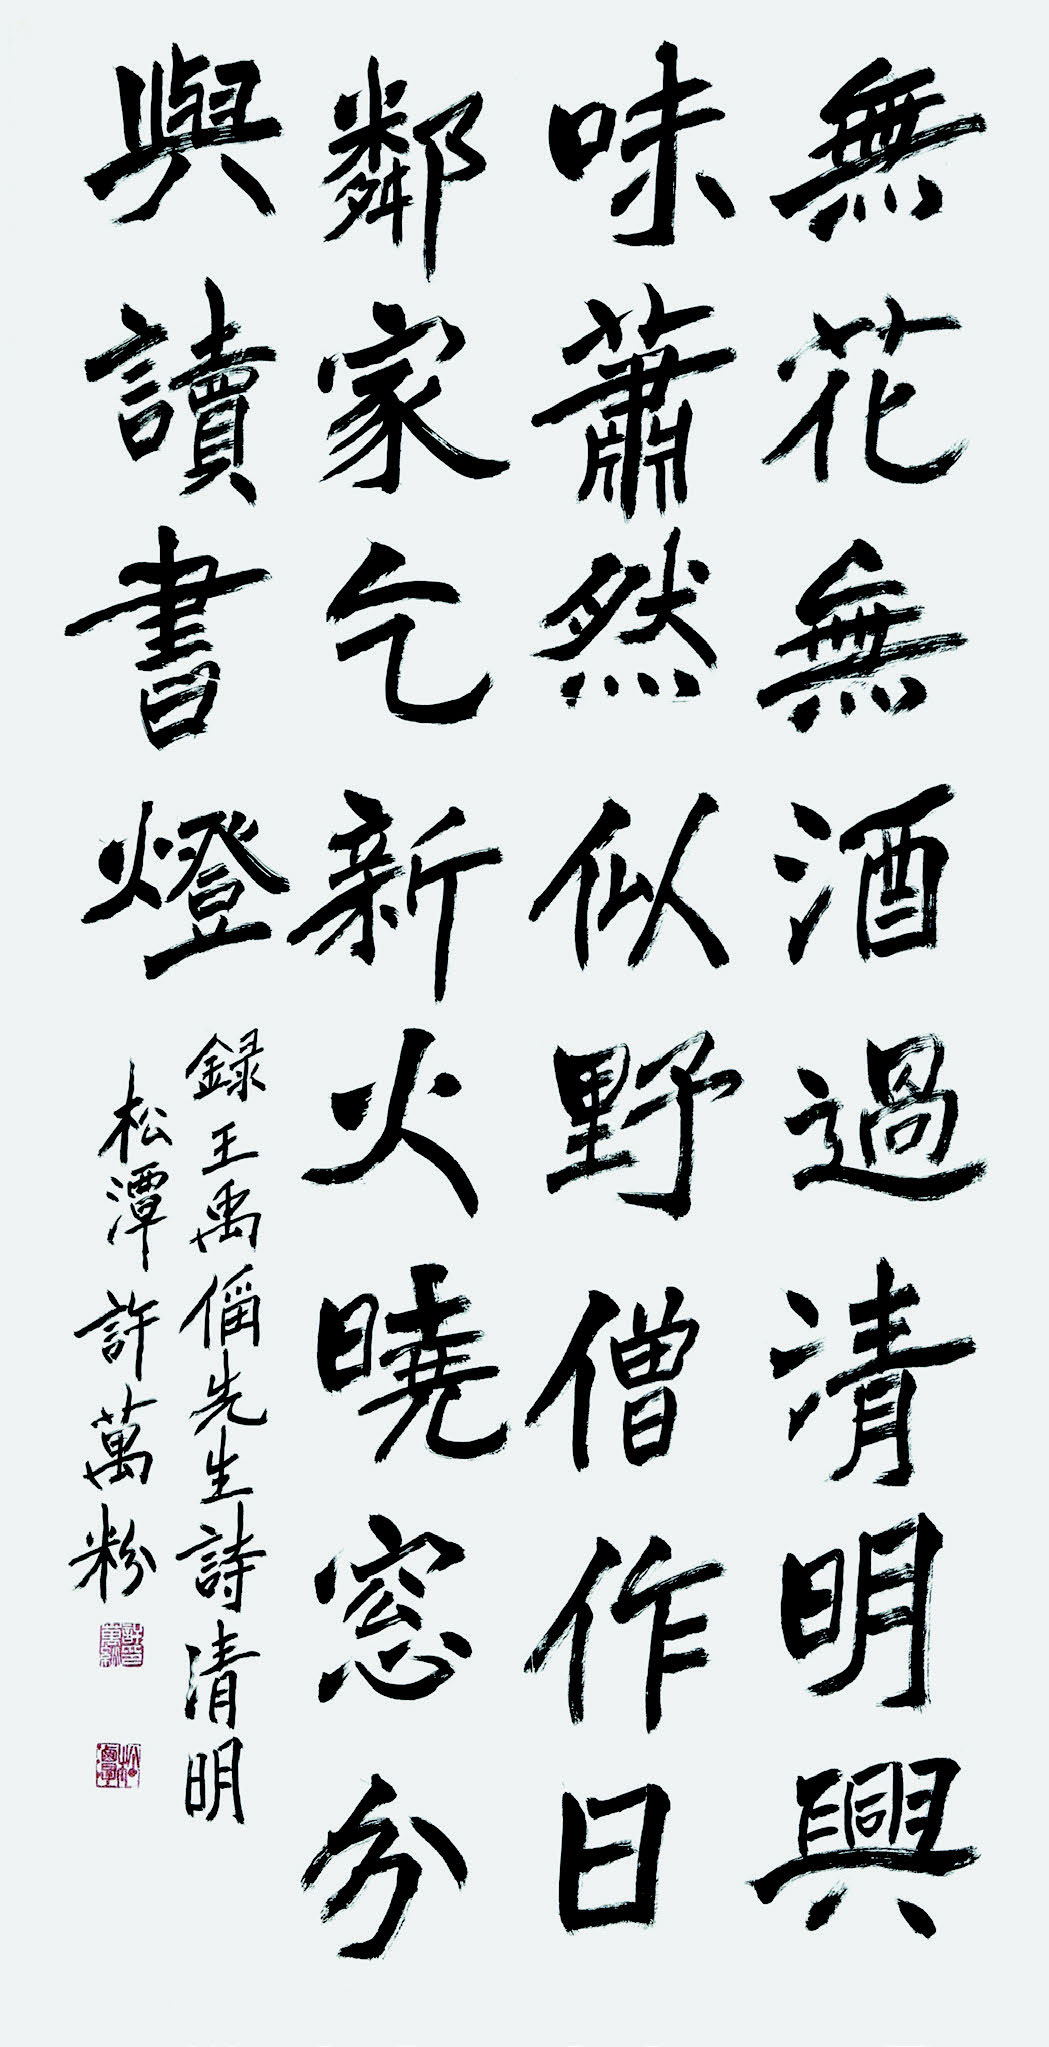 無花無酒過清明興
味蕭然似野僧作日
鄰家乞新火曉窓分
與讀書燈
録王禹偁先生詩清明
松潭許萬粉